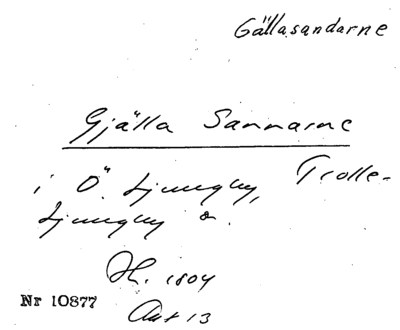 Gällasandarne
Gjälla Sannarne
i Ö. Ljungby, Trolle-
Ljungby s.
H. 1804
Nr 10877
Akt 13